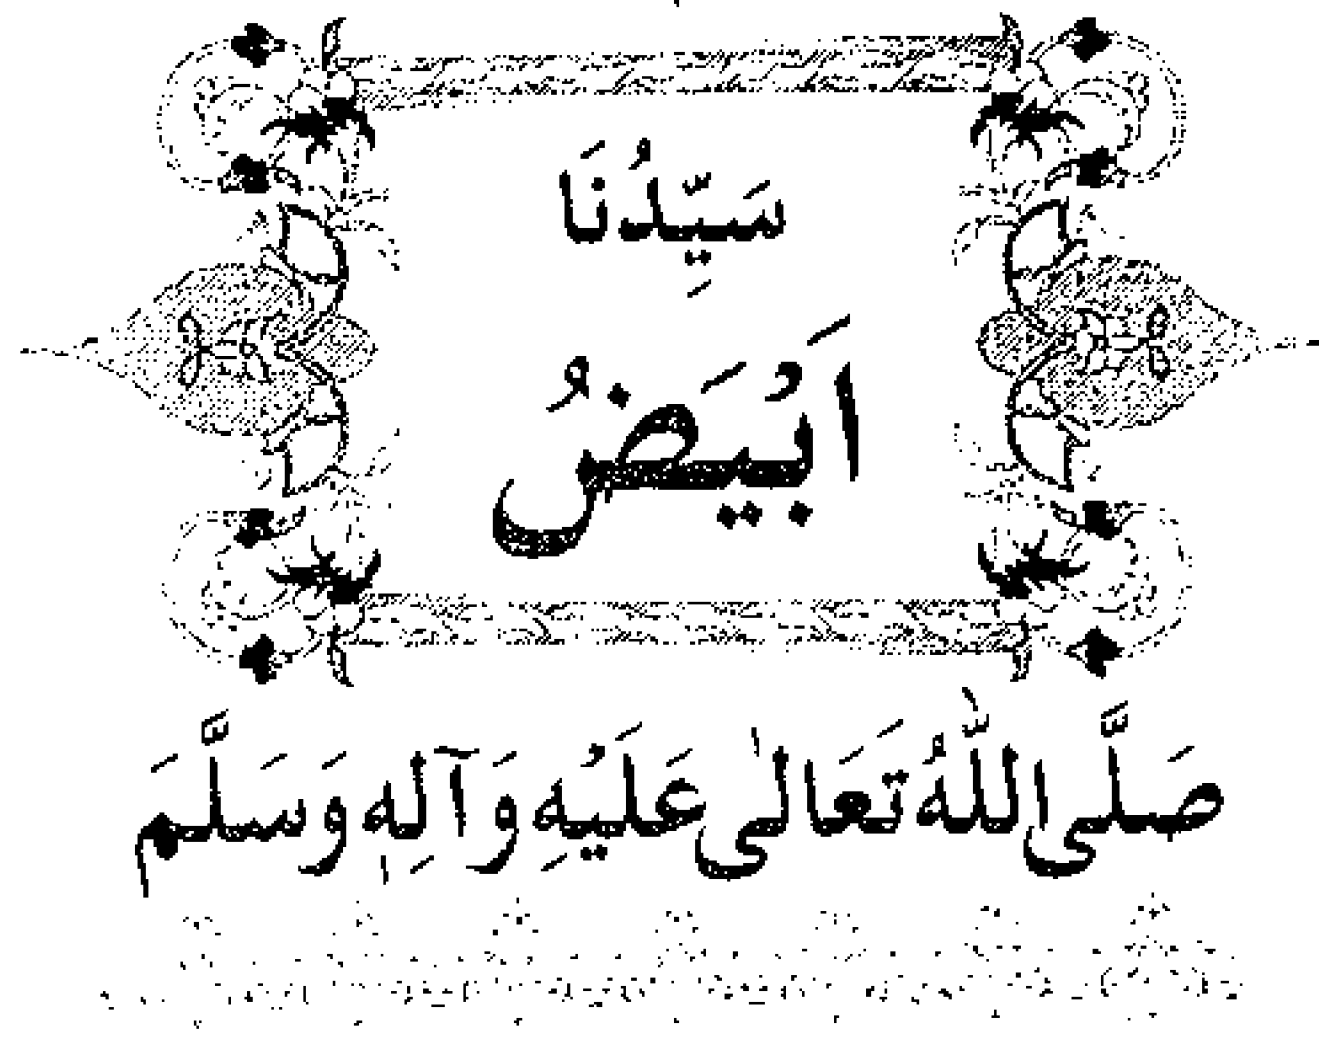 سَيِّدُنَا
اَبْيَضُ
صَلَّى اللّٰهُ تَعَالٰى عَلَيْهِ وَآلِهٖ وَسَلَّمَ